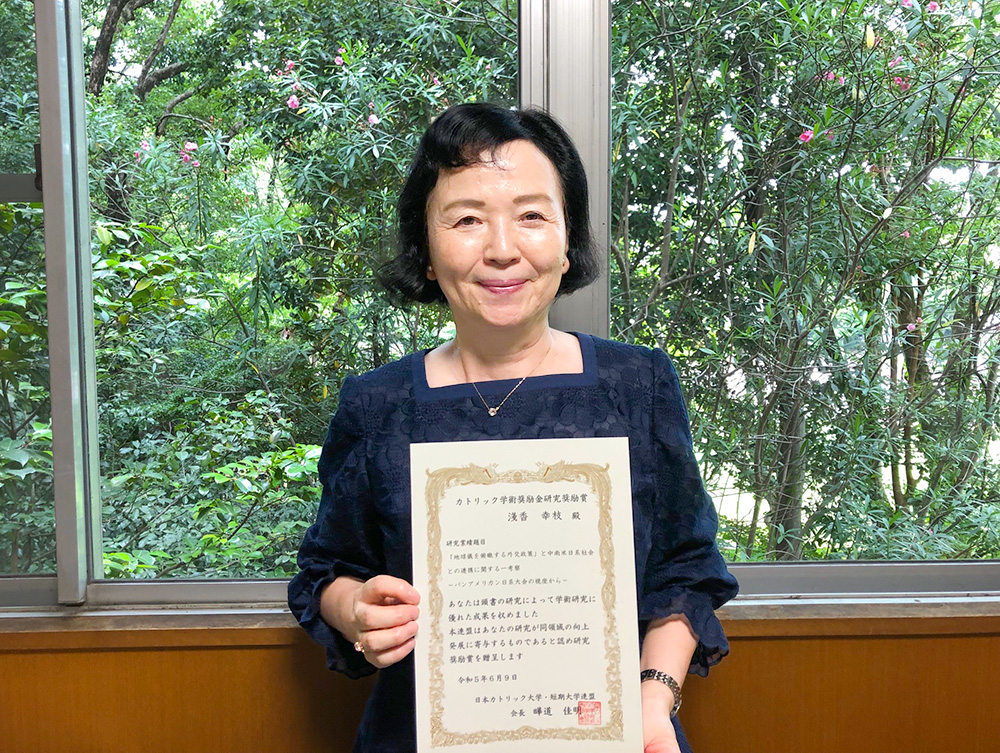 カトリック学術奨励金研究奨励賞
浅香 幸枝 殿
研究業績題目
「地球儀を俯瞰する外交政策」と中南米日系社会
との連携に関する一考察
－パンアメリカン日系大会の視座から－
あなたは頭書の研究によって学術研究に
優れた成果を収めました
本連盟はあなたの研究が同領域の向上
発展に寄与するものであると認め研究
奨励賞を贈呈します
令和5年6月9日
日本カトリック大学・短期大学連盟
会長 曄道 佳明